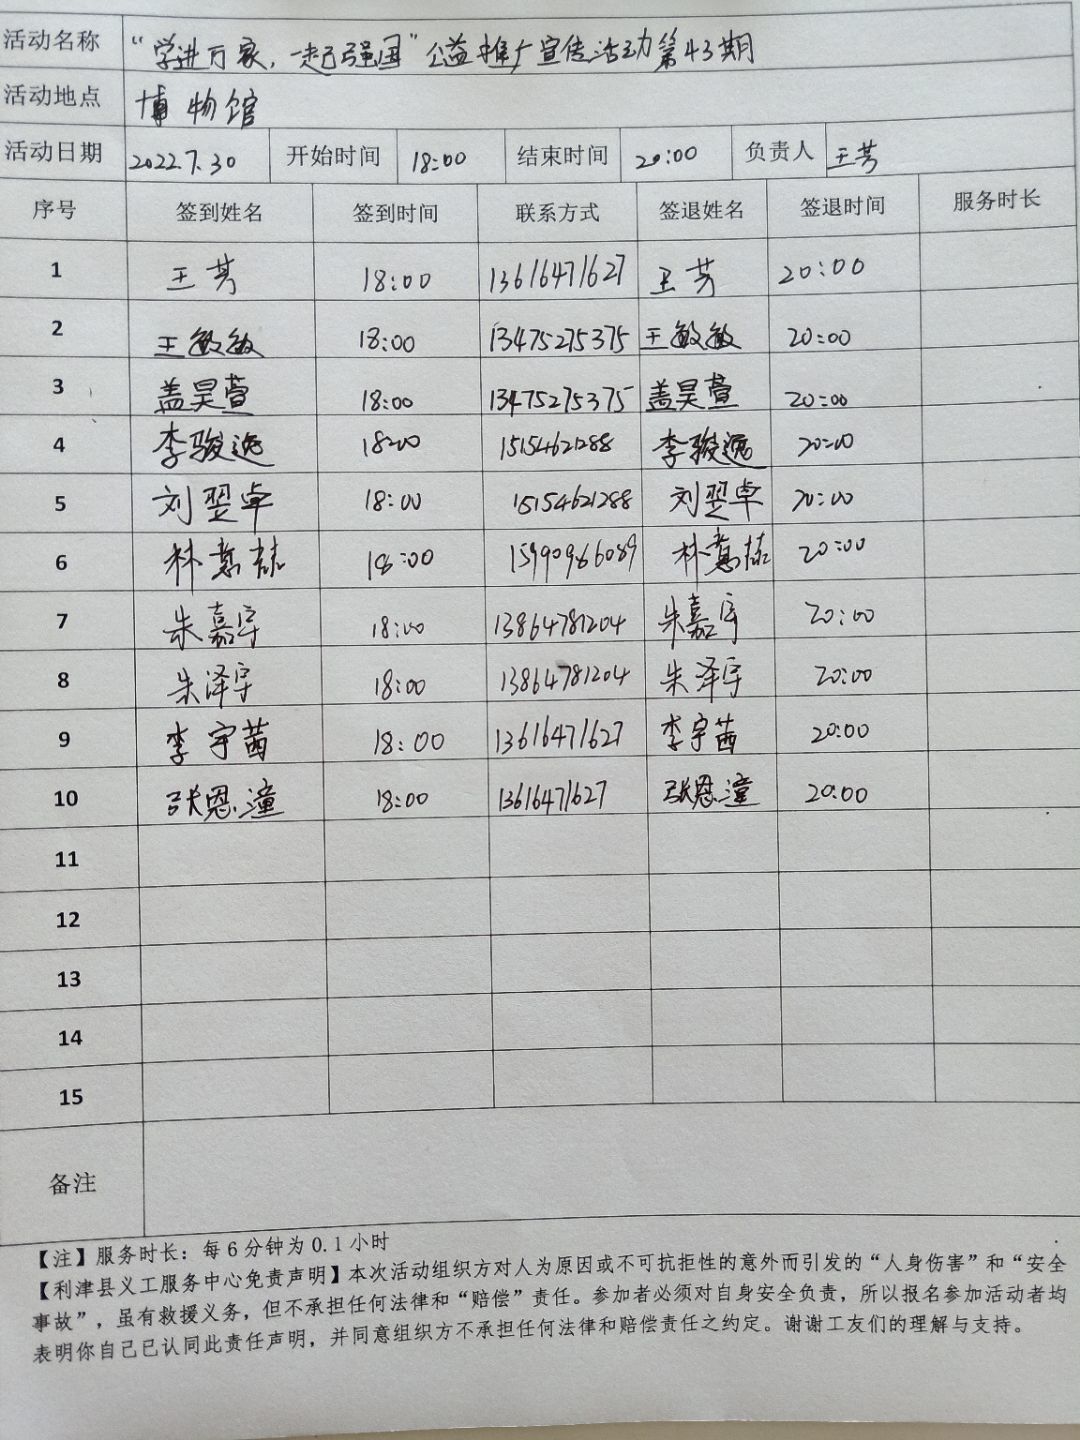 活动名称 “学进万家,一起强国”公益推广宣传活动第43期
活动地点 博物馆
活动日期 2022.7.30 开始时间 18:00 结束时间 20:00 负责人 王芳
序号 签到姓名 签到时间 联系方式 签退姓名 签退时间 服务时长
1 王芳 18:00 13616471627 王芳 20:00
2 王敏敏 18:00 13475275375 王敏敏 20:00
3 盖昊萱 18:00 13475275375 盖昊萱 20:00
4 李骏逸 18:00 15154621288 李骏逸 20:00
5 刘翌卓 18:00 15154621288 刘翌卓 20:00
6 林 18:00 15990966089 林 20:00
7 朱嘉宇 18:00 13864781204 朱嘉宇 20:00
8 朱泽宇 18:00 13864781204 朱泽宇 20:00
9 李宇茜 18:00 13616471627 李宇茜 20:00
10 张恩潼 18:00 13616471627 张恩潼 20:00
11
12
13
14
15
备注
【注】服务时长：每6分钟为0.1小时
【利津县义工服务中心免责声明】本次活动组织方对人为原因或不可抗拒性的意外而引发的“人身伤害”和“安全
事故”，虽有救援义务，但不承担任何法律和“赔偿”责任。参加者必须对自身安全负责，所以报名参加活动者均
表明你自己已认同此责任声明，并同意组织方不承担任何法律和赔偿责任之约定。谢谢工友们的理解与支持。